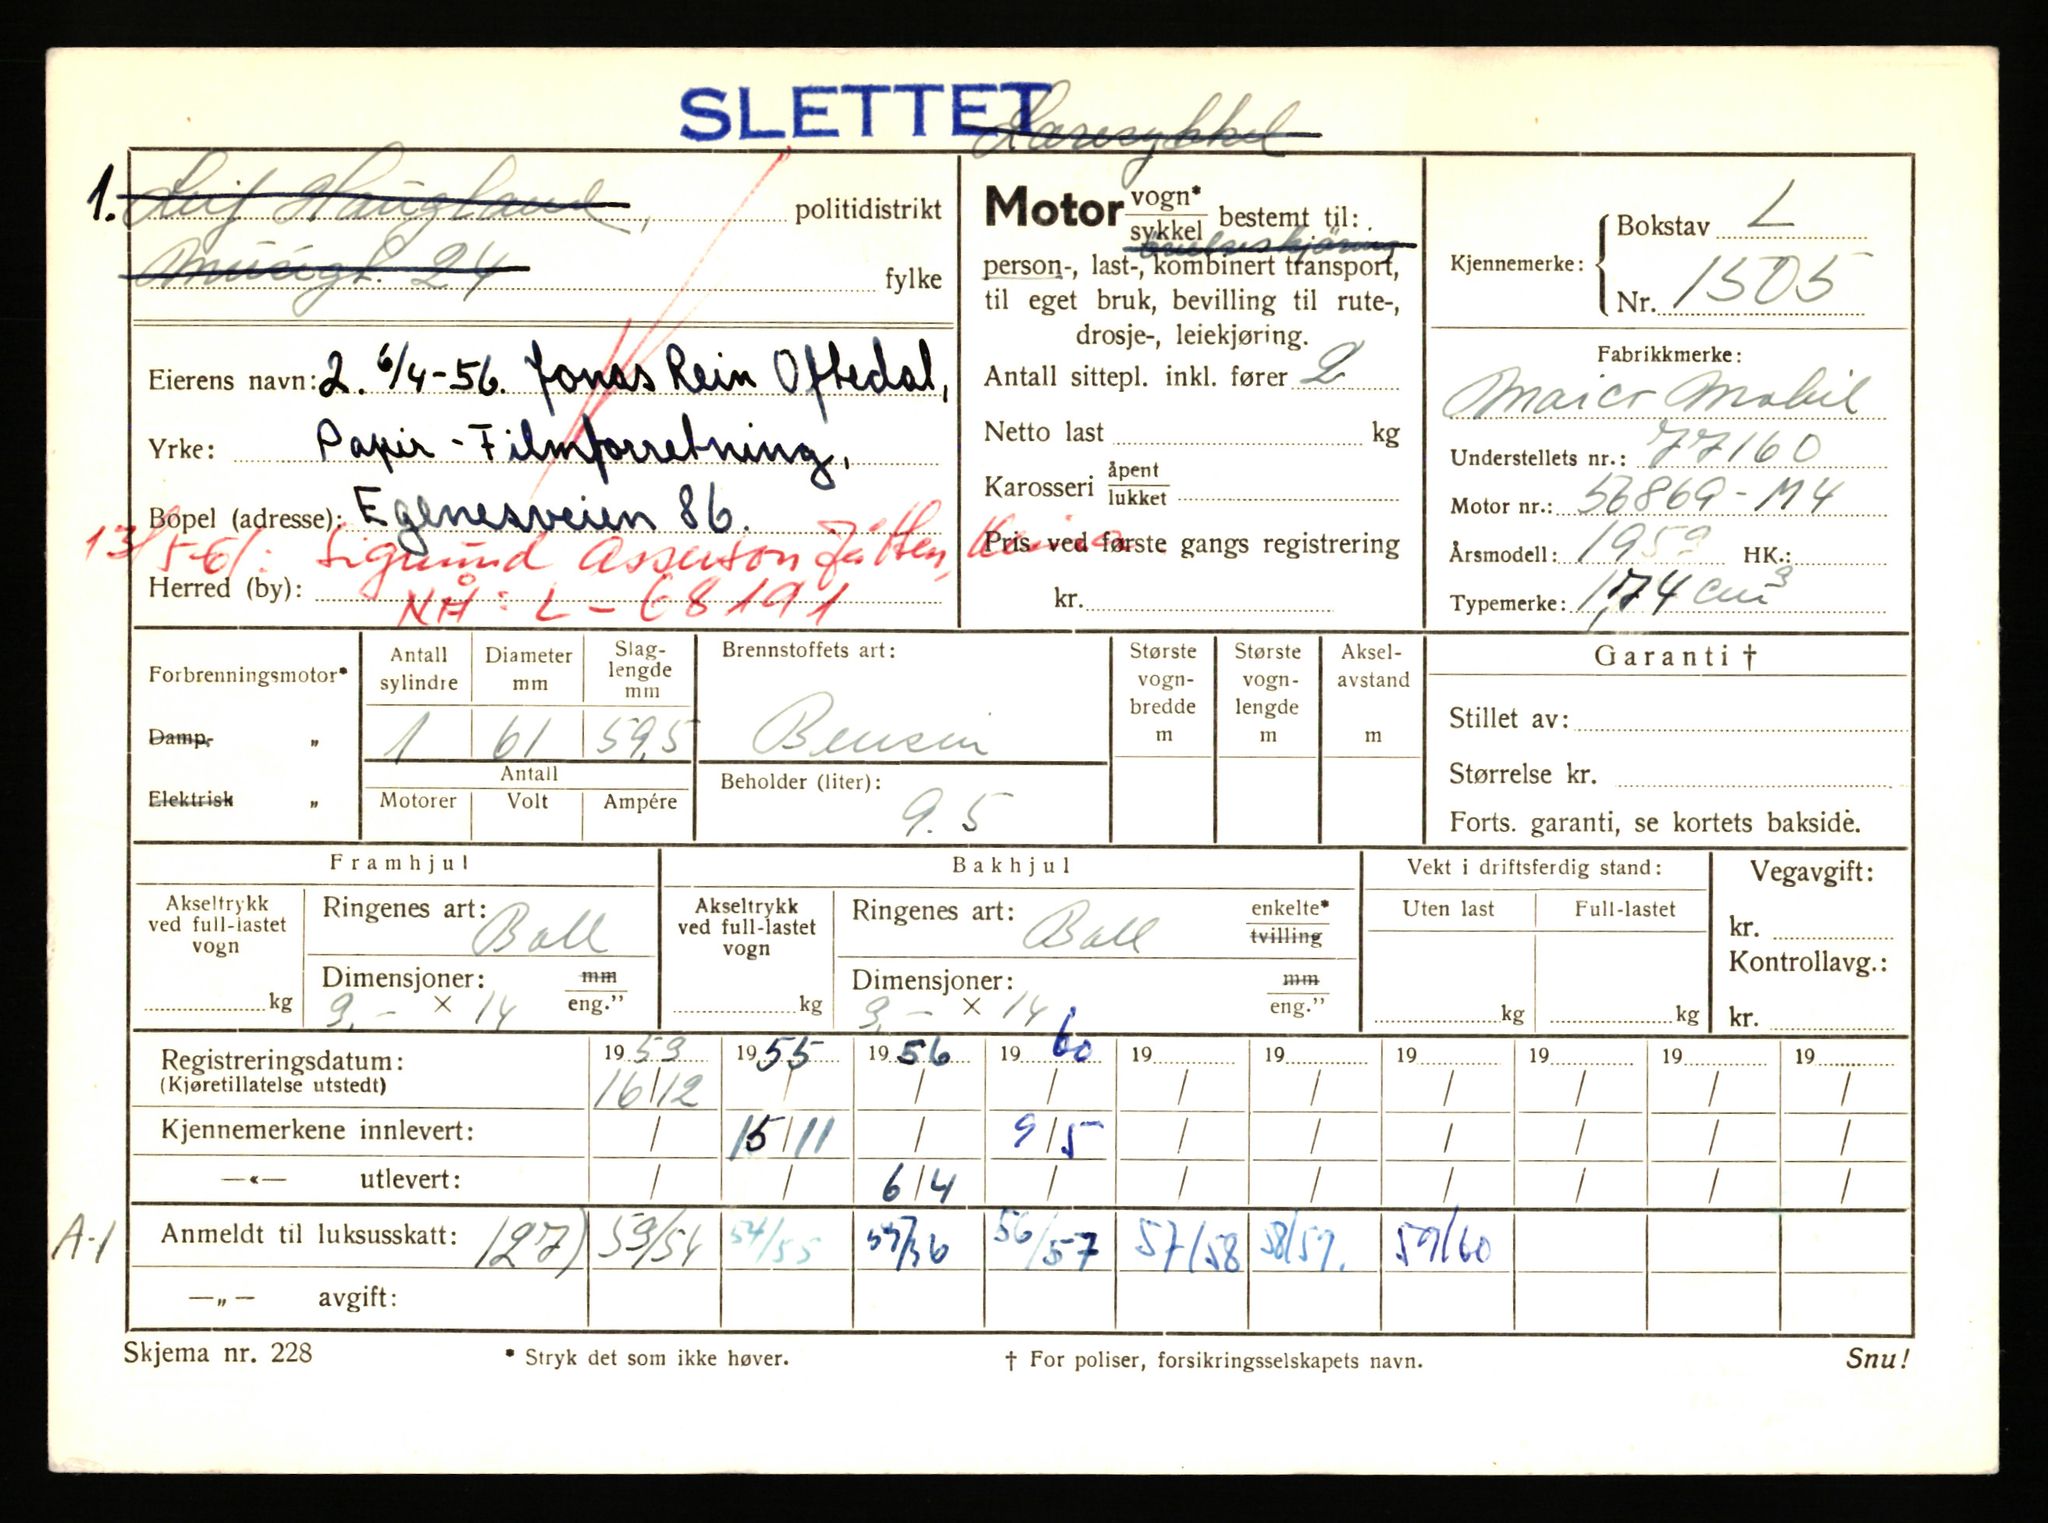 SLETTET
Lærevykkel
1. Leif Haugland, politidistrikt
24 fylke
Eierens navn: 2. 6/4-56. Jonas Rein Oftedal,
Yrke: Papir-Filmforretning,
Bopel (adresse): Egenesveien 86.
13/5-61: Sigmund Asserson Jåtten,
Herred (by): NÅ: L-68191
Motor vogn* sykkel bestemt til:
øvelseskjøring
person-, last-, kombinert transport,
til eget bruk, bevilling til rute-,
drosje-, leiekjøring.
Antall sittepl. inkl. fører 2
Netto last kg
Karosseri åpent lukket
Pris ved første gangs registrering
kr.
Kjennemerke: Bokstav L
Nr. 1505
Fabrikkmerke:
Maico Mobil
Understellets nr.: 77160
Motor nr.: 56869-M4
Årsmodell: 1953 HK.:
Typemerke: 174 cm³
Forbrenningsmotor*
Damp- „
Elektrisk „
Antall sylindre 1
Diameter mm 61
Slaglengde mm 59,5
Antall
Motorer Volt Ampére
Brennstoffets art:
Bensin
Beholder (liter):
9.5
Største vognbredde m
Største vognlengde m
Akselavstand m
Garanti †
Stillet av:
Størrelse kr.
Forts. garanti, se kortets bakside.
Framhjul
Akseltrykk ved full-lastet vogn
kg
Ringenes art: Ball
Dimensjoner: mm
3,- × 14 eng."
Bakhjul
Akseltrykk ved full-lastet vogn
kg
Ringenes art: Ball enkelte* tvilling
Dimensjoner: mm
3,- × 14 eng."
Vekt i driftsferdig stand:
Uten last Full-lastet
kg kg
Vegavgift:
kr.
Kontrollavg.:
kr.
Registreringsdatum: 1953 1955 1956 1960 19 19 19 19 19 19
(Kjøretillatelse utstedt) 16/12 / / / / / / / / /
Kjennemerkene innlevert: / 15/11 / 9/5 / / / / / /
—«— utlevert: / / 6/4 / / / / / / /
A-1 Anmeldt til luksusskatt: 127) 53/54 54/55 55/56 56/57 57/58 58/59. 59/60
—„— avgift:
Skjema nr. 228 * Stryk det som ikke høver. † For poliser, forsikringsselskapets navn. Snu!